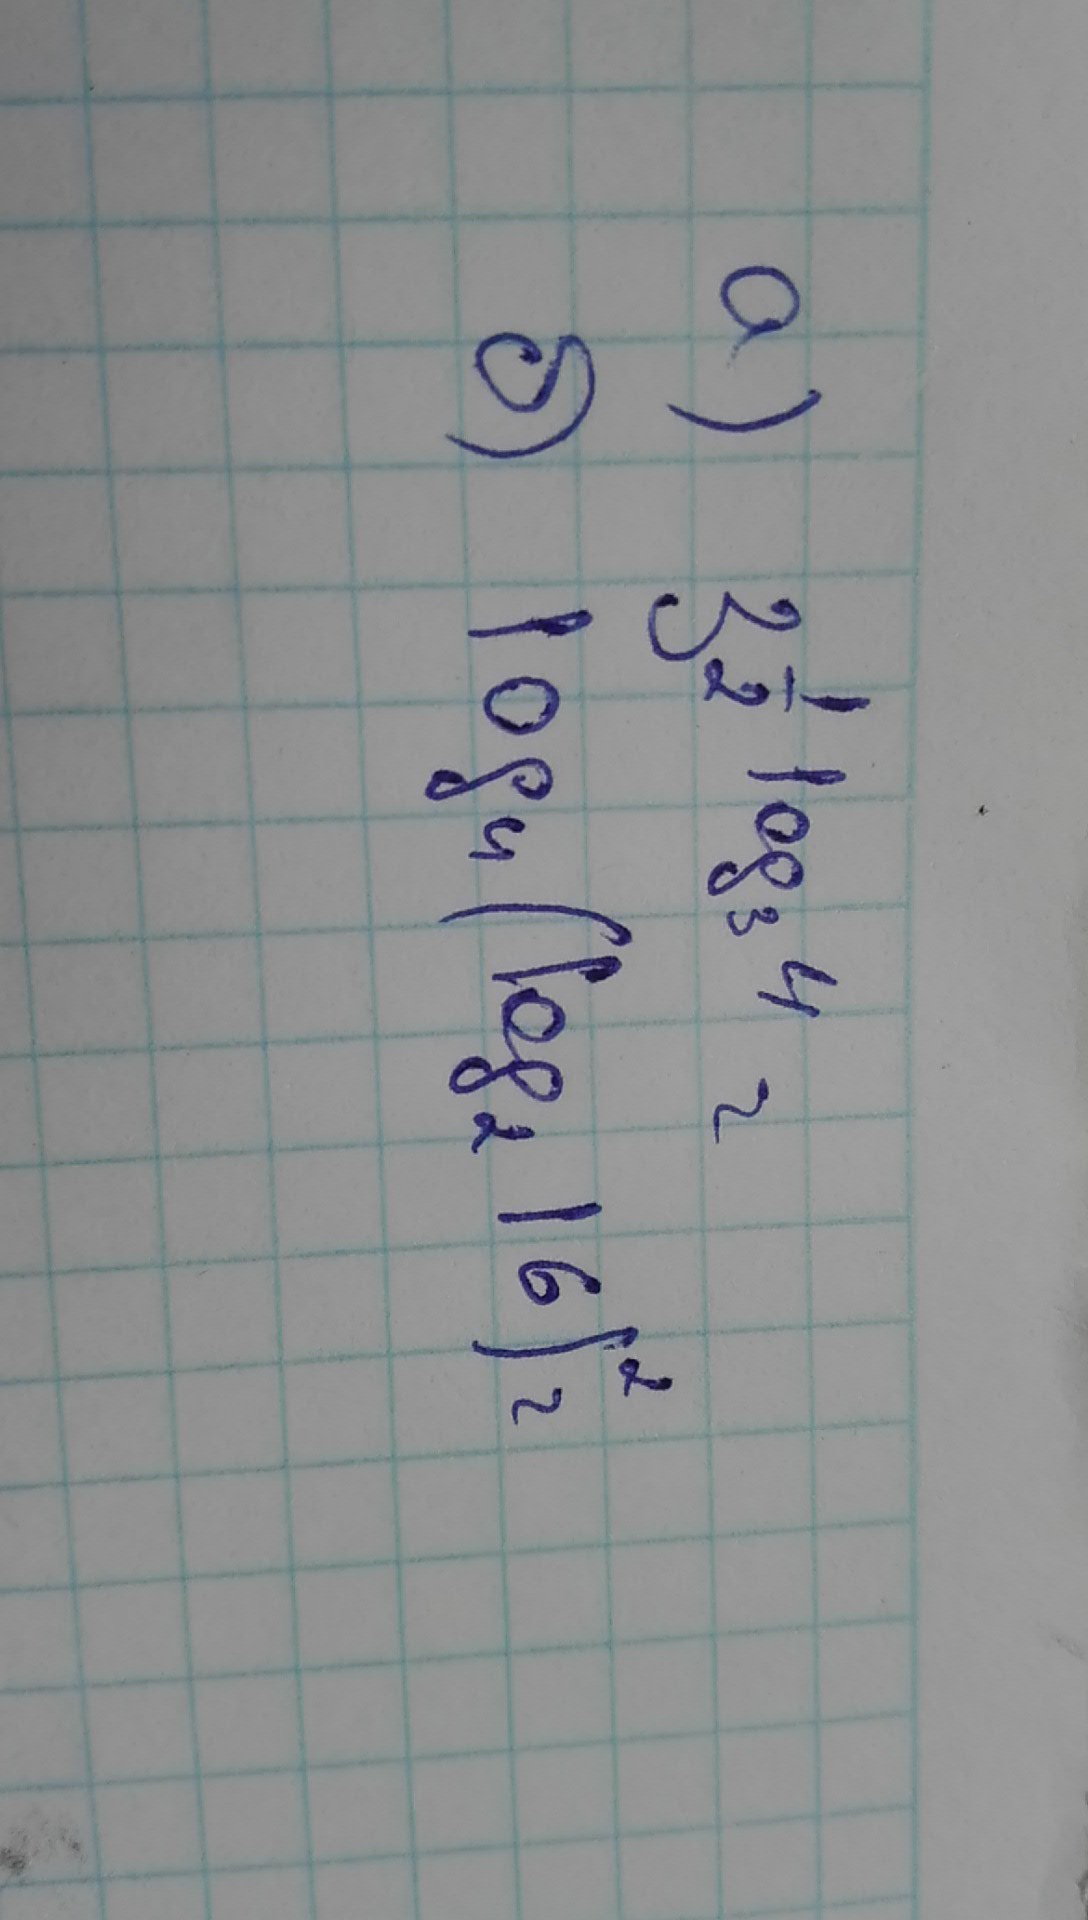 а) 3^{\frac{1}{2} log_3 4} ~
б) log_4 (log_2 16)^2 ~